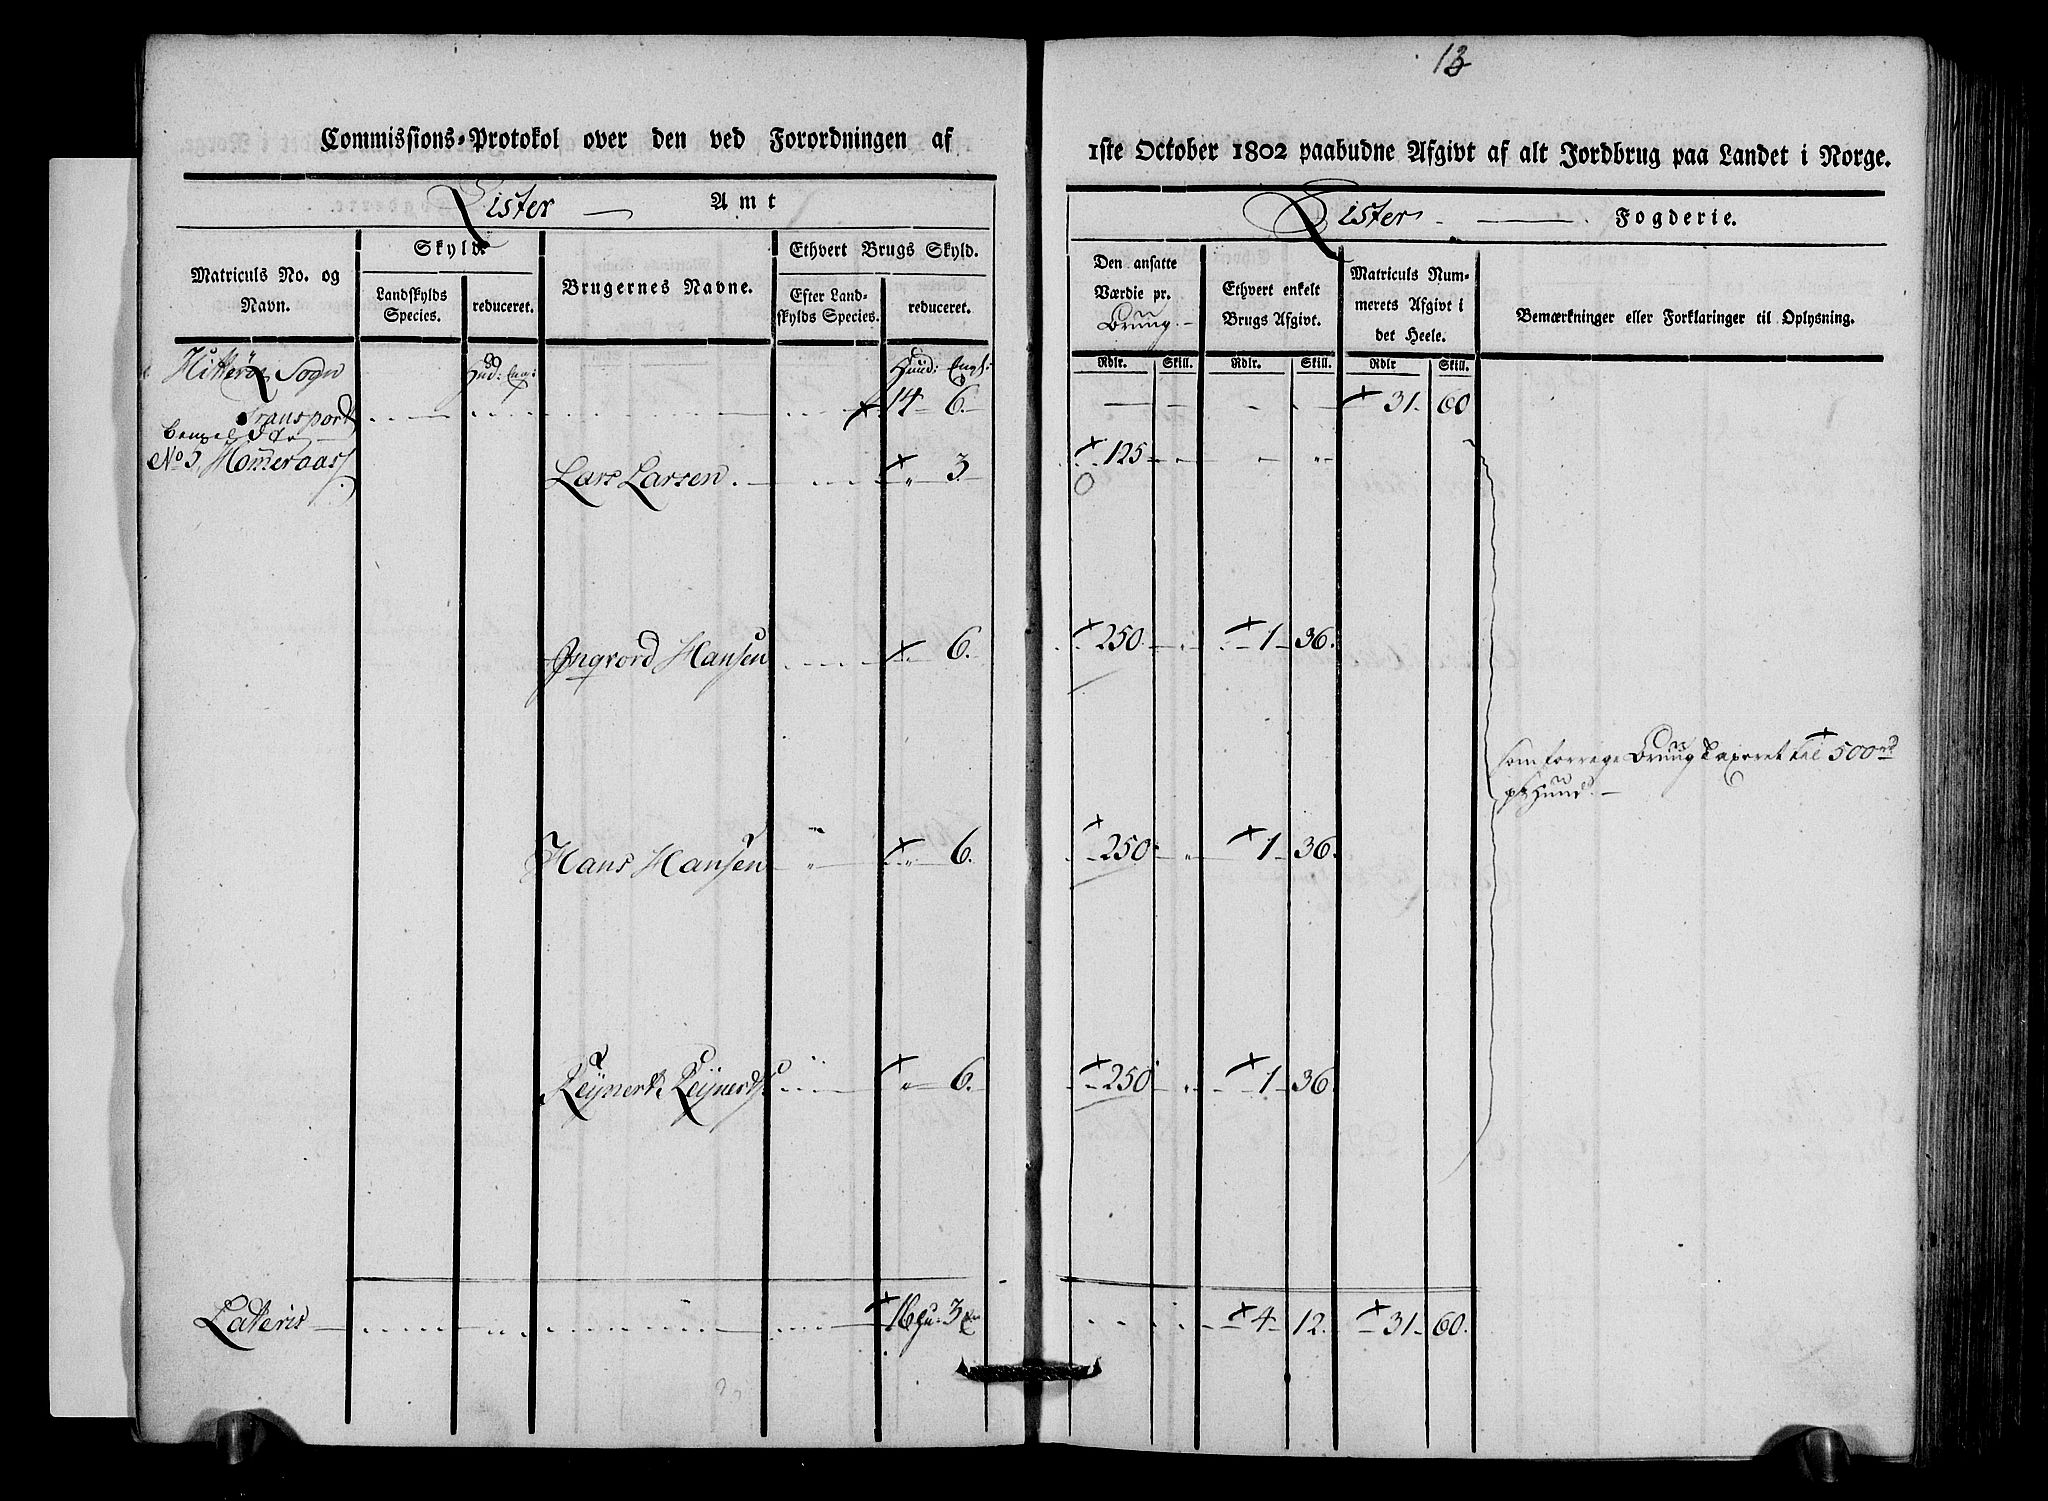 13
Commissions-Protokol over den ved Forordningen af
1ste October 1802 paabudne Afgivt af alt Jordbrug paa Landet i Norge.
Lister Amt
Lister Fogderie.
Matriculs No. og Navn.
Skyld.
Landskylds Species.
reduceret.
Brugernes Navne.
Ethvert Brugs Skyld.
Efter Landskylds Species.
reduceret.
Den ansatte Værdie pr. Bruug
Ethvert enkelt Brugs Afgivt.
Matriculs Nummerets Afgivt i det Heele.
Bemærkninger eller Forklaringer til Oplysning.
Rdlr. Skill. Rdlr. Skill. Rdlr Skill.
Hitterøe Sogn Hud: Eng: Huud: Engl:
Transport 14 6. 31. 60
No 5, Homeraas
Lars Larsen. 3. 125
Ingvord Hansen 6. 250. 1 36.
som forrege Bruug taxeret til 500 rd
pr Huud.
Hans Hansen 6. 250 1 36.
Reijnert Reijnerts. 6. 250 1 36.
Lateris 16 Hu. 3 En 4 12. 31 60.